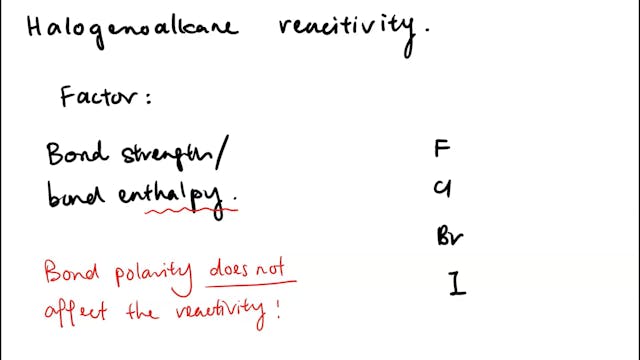 Halogenoalkane reacitivity.
Factor:
Bond strength/
bond enthalpy.
Bond polarity does not
affect the reactivity!
F
Cl
Br
I